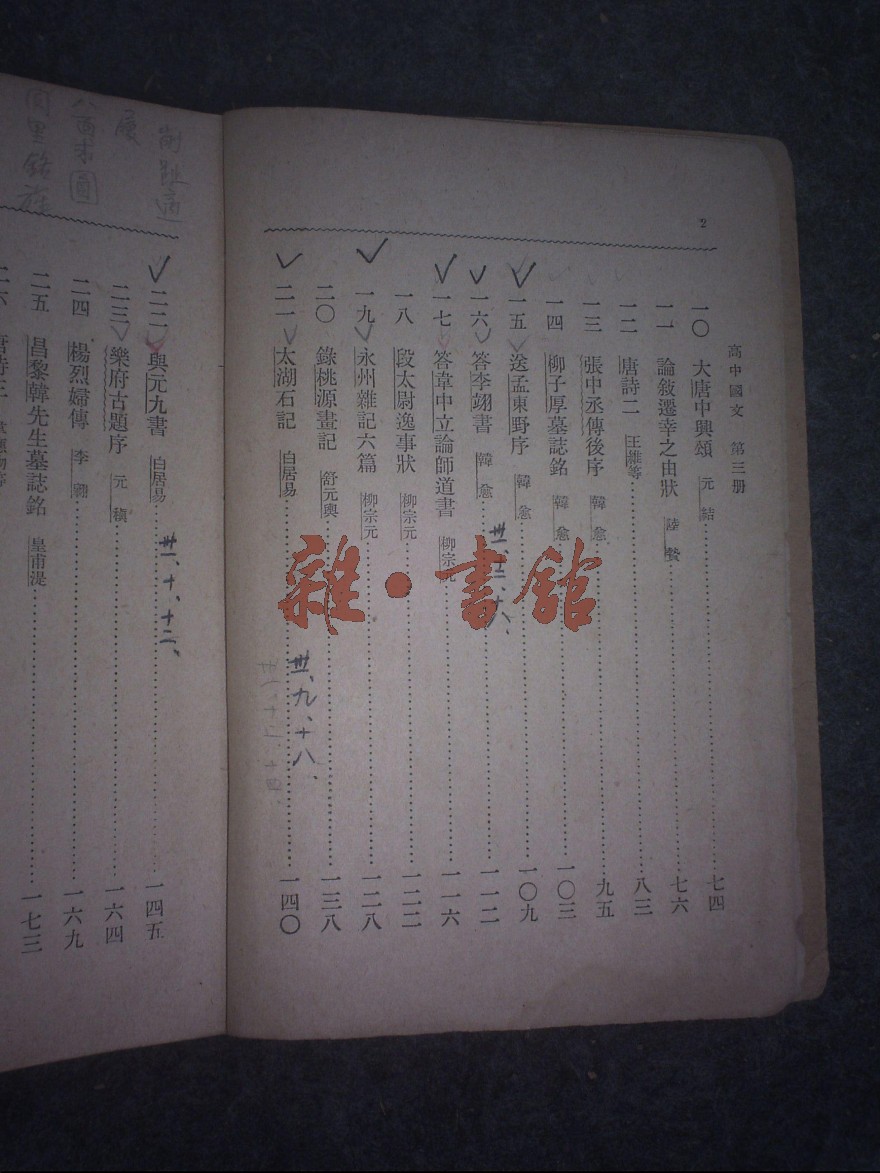 2
高中國文 第三册
一〇 大唐中興頌 元結 七四
一一 論敍遷幸之由狀 陸贄 七六
一二 唐詩二 王維等 八三
一三 張中丞傳後序 韓愈 九五
一四 柳子厚墓誌銘 韓愈 一〇三
一五 送孟東野序 韓愈 一〇九
一六 答李翊書 韓愈 一一二
卅、十二、十八、
一七 答韋中立論師道書 柳宗元 一一六
一八 段太尉逸事狀 柳宗元 一二二
一九 永州雜記六篇 柳宗元 一二八
二〇 錄桃源畫記 舒元輿 一三八
卅、九、十八、
二一 太湖石記 白居易 一四〇
雜·書館
卅一、十、十二、
二二 與元九書 白居易 一四五
二三 樂府古題序 元稹 一六四
二四 楊烈婦傳 李翱 一六九
二五 昌黎韓先生墓誌銘 皇甫湜 一七三
二六 唐詩三